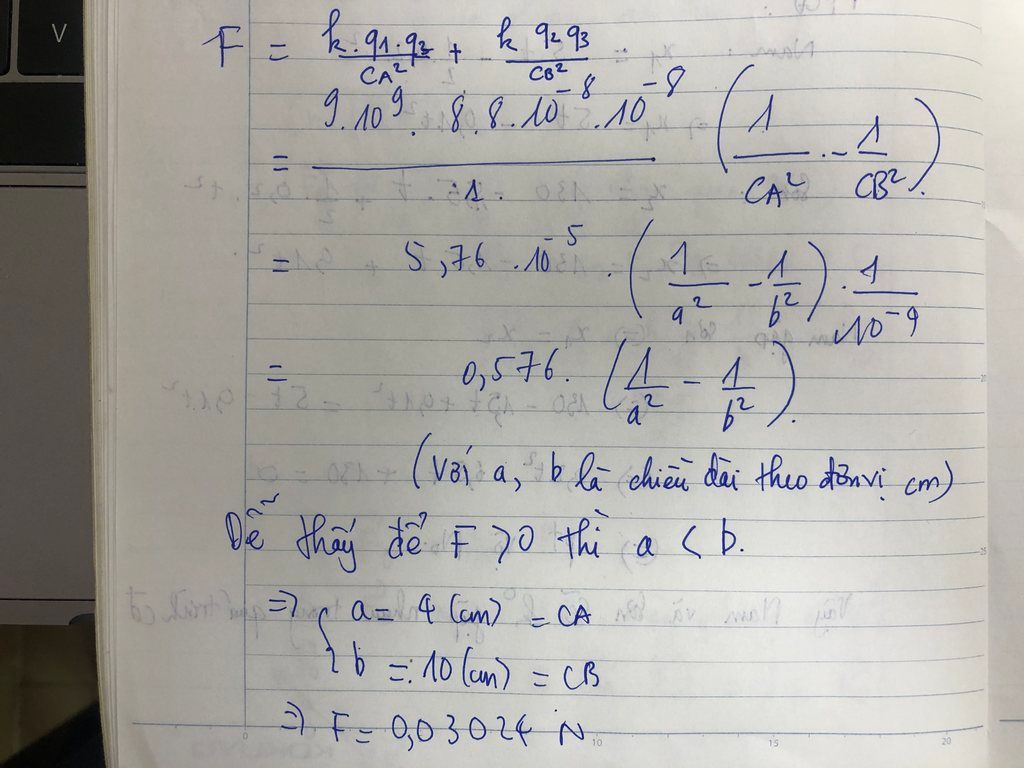 V
F = k.q1.q3/CA² + k q2 q3/CB²
= 9.10⁹. 8.8.10⁻⁸.10⁻⁸/1. (1/CA² - 1/CB²).
= 5,76.10⁻⁵. (1/a² - 1/b²). 1/10⁻⁴
= 0,576. (1/a² - 1/b²).
(với a, b là chiều dài theo đơn vị cm)
Dễ thấy để F > 0 thì a < b.
=> { a = 4 (cm) = CA
b = 10 (cm) = CB
=> F = 0,03024 N
10 15 20